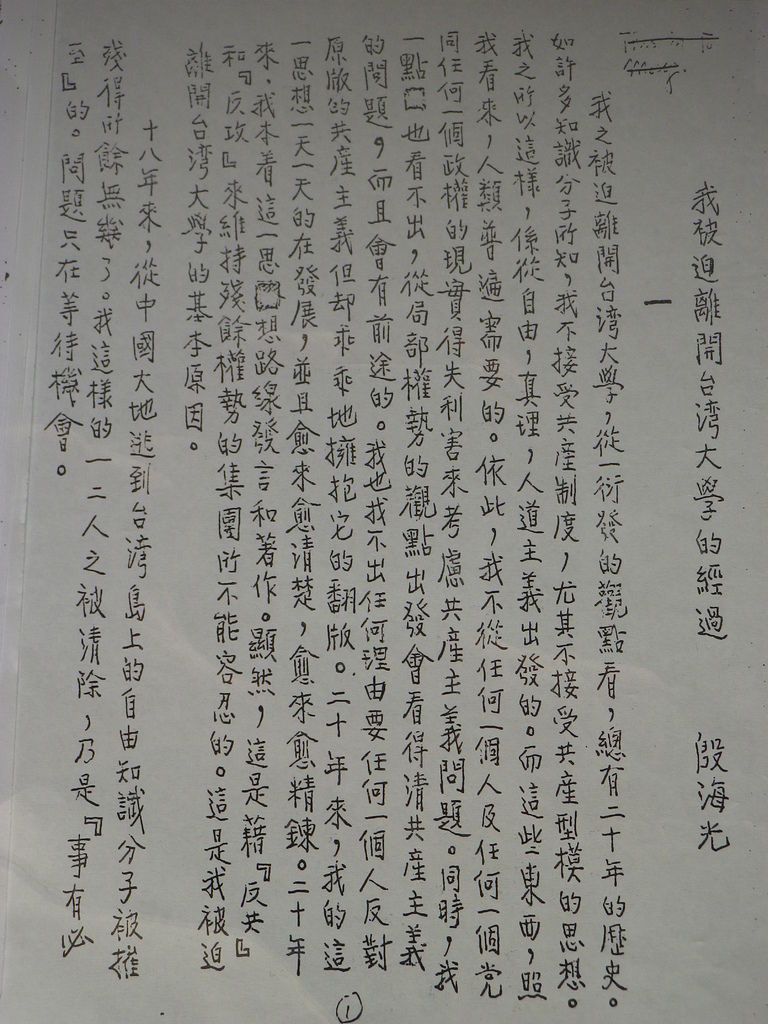 我被迫離開台湾大學的經過 殷海光
一
我之被迫離開台湾大學，從一衍發的觀點看，總有二十年的歷史。
如許多知識分子所知，我不接受共產制度，尤其不接受共產型模的思想。
我之所以這樣，係從自由，真理，人道主義出發的。而這些東西，照
我看來，人類普遍需要的。依此，我不從任何一個人及任何一個党
同任何一個政權的現實得失利害來考慮共產主義問題。同時，我
一點也看不出，從局部權勢的觀點出發會看得清共產主義
的問題，而且會有前途的。我也找不出任何理由要任何一個人反對
原版的共產主義但却乖乖地擁抱它的翻版。二十年來，我的這
一思想一天一天的在發展，並且愈來愈清楚，愈來愈精鍊。二十年
來，我本着這一思想路線發言和著作。顯然，這是藉『反共』
和『反攻』來維持殘餘權勢的集團所不能容忍的。這是我被迫
離開台湾大學的基本原因。
十八年來，從中國大地逃到台湾島上的自由知識分子被摧
殘得所餘無幾了。我這樣的一二人之被清除，乃是『事有必
至』的。問題只在等待機會。
1